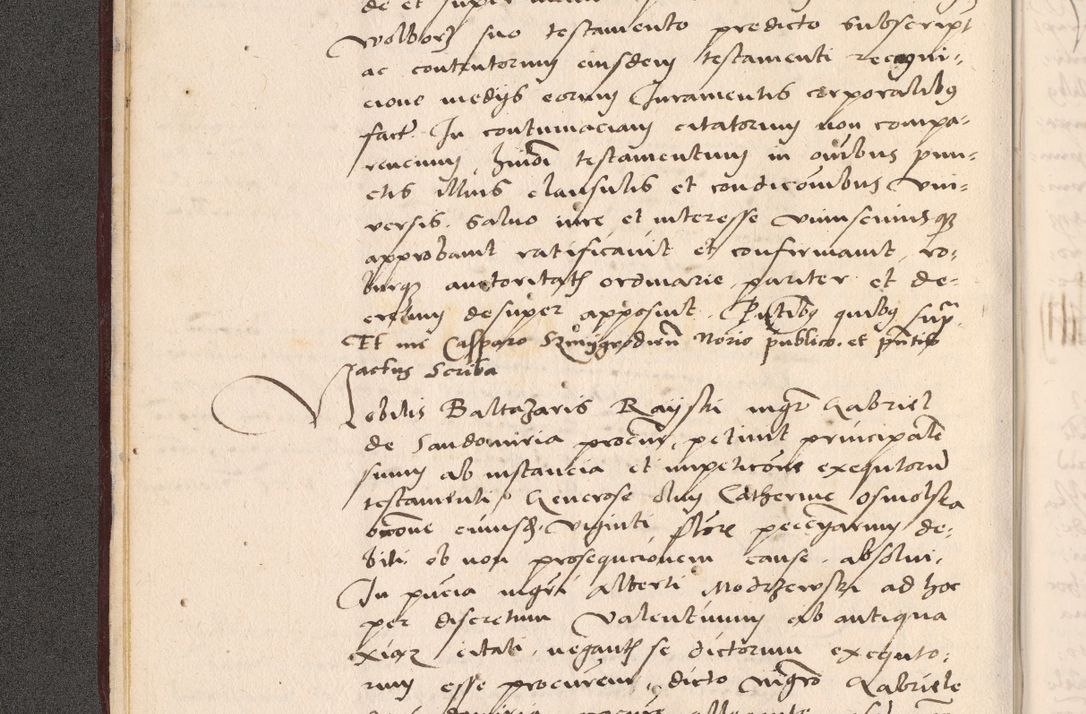 de et super
Wolborz suo testamento predicto subscript
ac contentorum eiusdem testamenti recogni-
cione medijs eorum Iuramentis corporalibus
fact. In contumaciam citatorum non compa-
rencium huiusmodi testamentum in omnibus punc-
ctis illius clausulis et condicionibus vni-
versis. Salvo iure et interesse vniuscuiusque
approbavit ratificavit et confirmavit, ro-
burque auctoritatis ordinarie pariter et de-
cretum desuper apposuit. Presentibus quibus supra
Et me Casparo Szmijgrodien Notrio publico. et pntis
actus Scriba
Nobilis Baltazaris Rayski mgr Gabriel
de Sandomiria procur, petiuit principale
suum ab instancia et impeticione exequtorum
testamenti Generose olim Catherine Osmolska
occasione eiusdem viginti flore peccuniarum de-
biti ob non prosequcionem cause. absolui.
In pncia mgri Alberti Modrzewski ad hoc
per discretum Valentinum ab antiqua
citati, negantis se dictorum exequto-
rum esse procurem, dicto Magro Gabriele